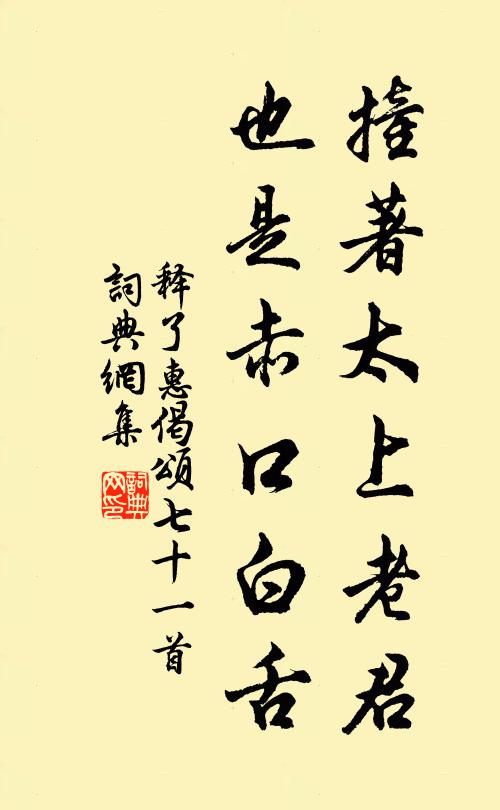 撞著太上老君
也是赤口白舌
释了惠偈頌七十一首
詞典網集
詞典
网印